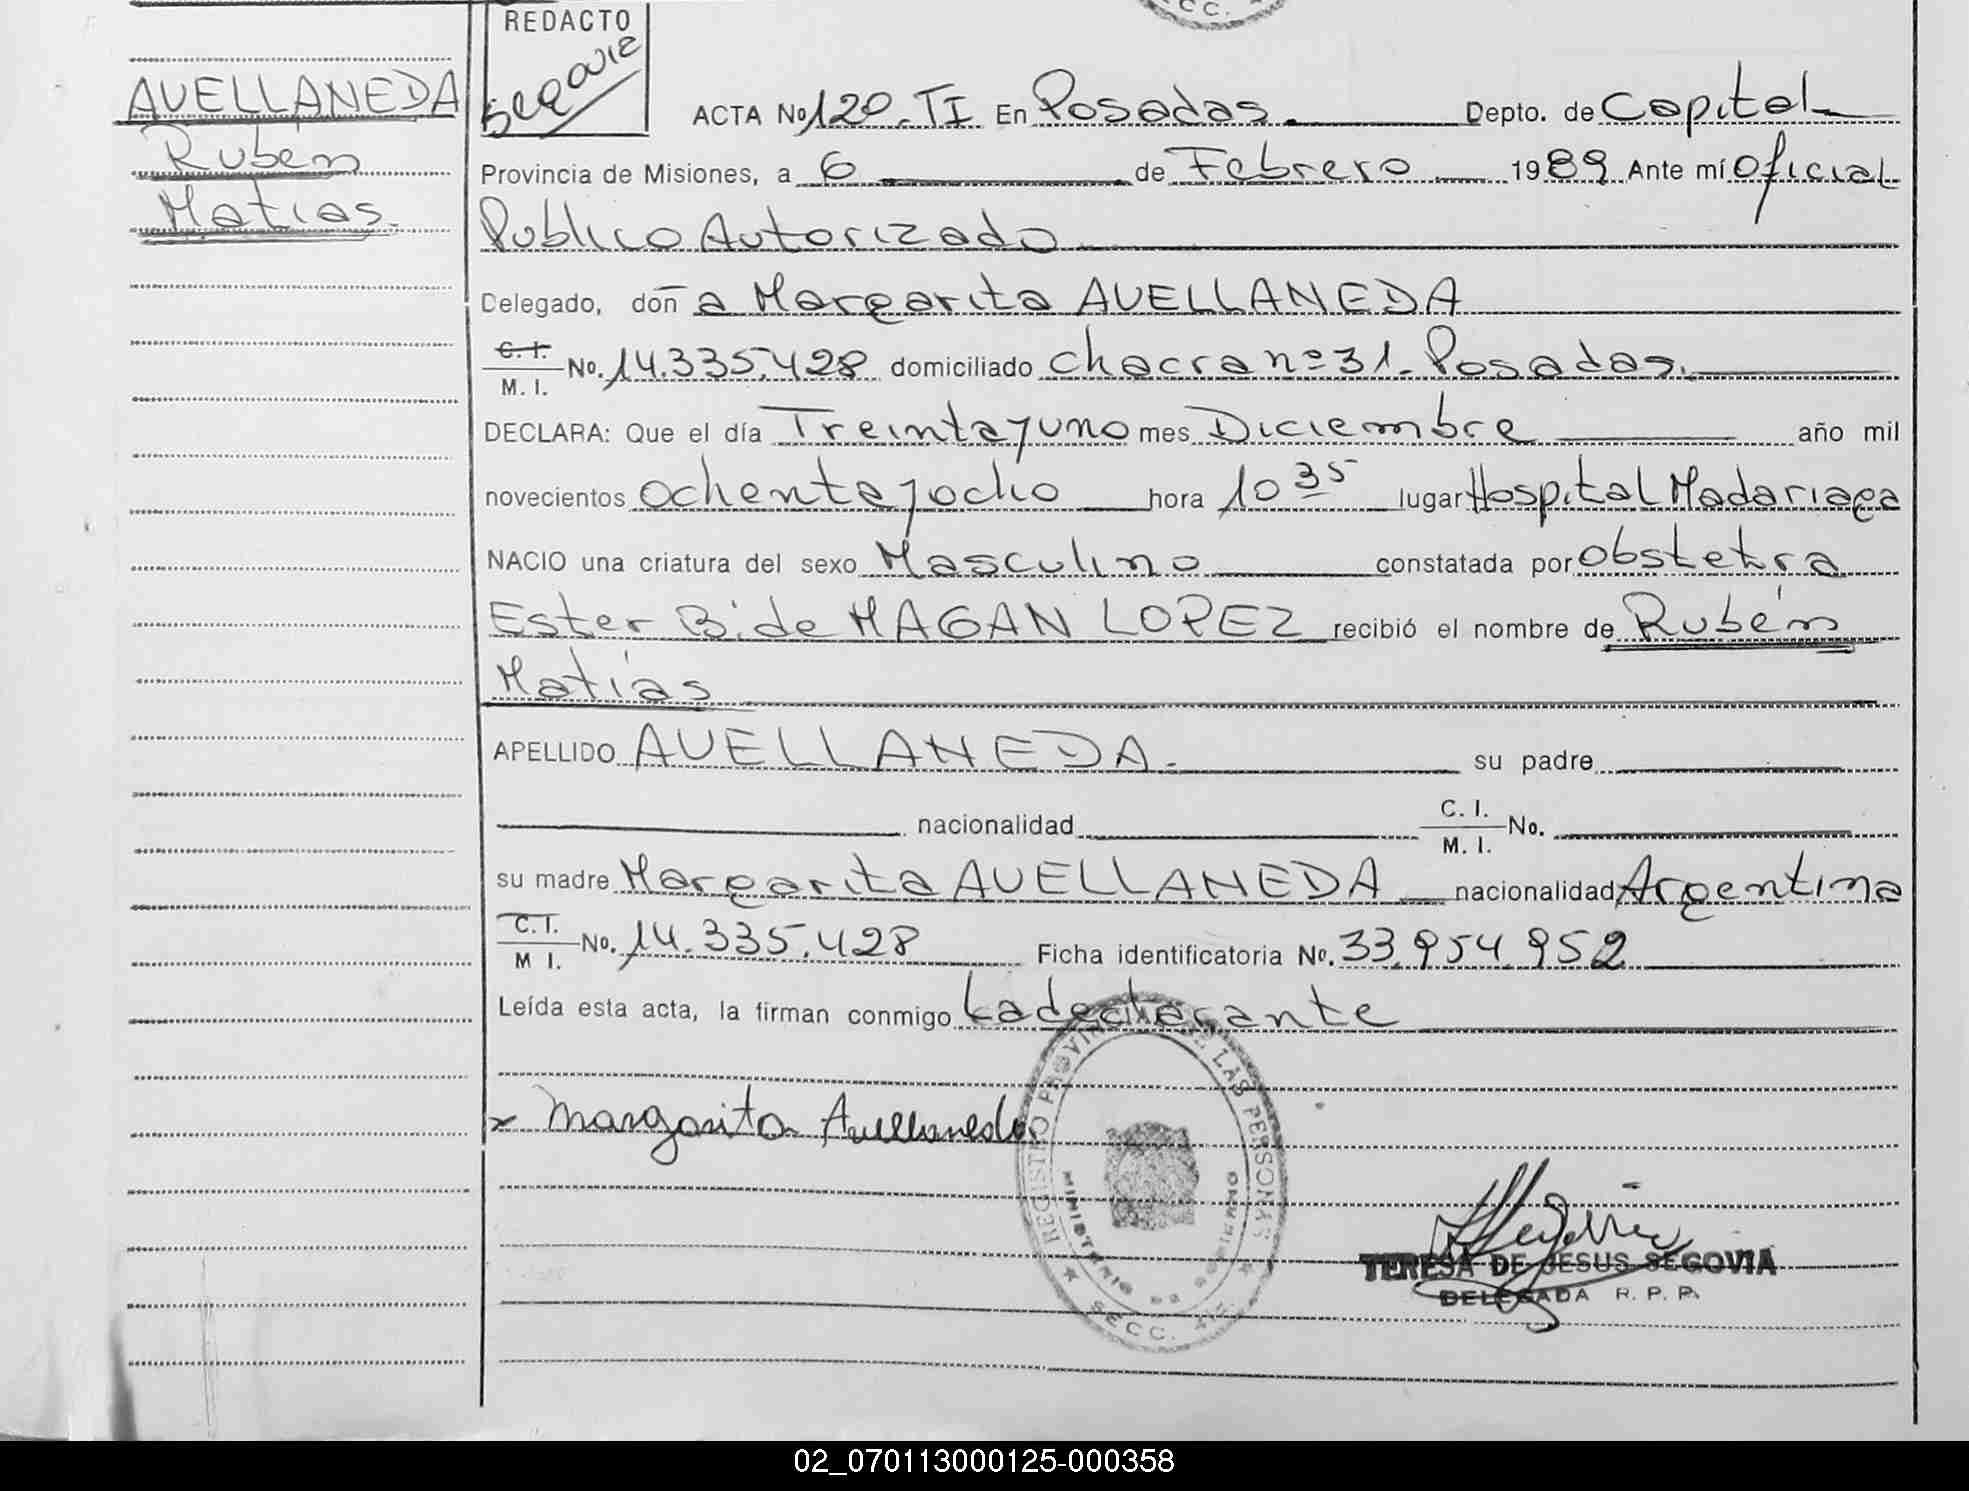 SECC.
REDACTO
Segovia
AVELLANEDA
Rubén
Matías.
ACTA No 120-TI En Posadas. Depto. de Capital
Provincia de Misiones, a 6 de Febrero 1989 Ante mí Oficial
Publico Autorizado
Delegado, don a Margarita AVELLANEDA
C. I.
M. I. No. 14.335.428 domiciliado chacra nº 31- Posadas.
DECLARA: Que el día Treinta y uno mes Diciembre año mil
novecientos ochenta y ocho hora 10 35 lugar Hospital Madariaga
NACIO una criatura del sexo Masculino constatada por Obstetra
Ester B. de MAGAN LOPEZ recibió el nombre de Rubén
Matías
APELLIDO AVELLANEDA. su padre
nacionalidad C. I.
M. I. No.
su madre Margarita AVELLANEDA nacionalidad Argentina
C. I.
M I. No. 14.335.428 Ficha identificatoria No. 33.954.952
Leída esta acta, la firman conmigo La declarante
x Margarita Avellaneda
REGISTRO PROVINCIAL DE LAS PERSONAS
MINISTERIO DE GOBIERNO
SECC.
TERESA DE JESUS SEGOVIA
DELEGADA R. P. P.
02_070113000125-000358